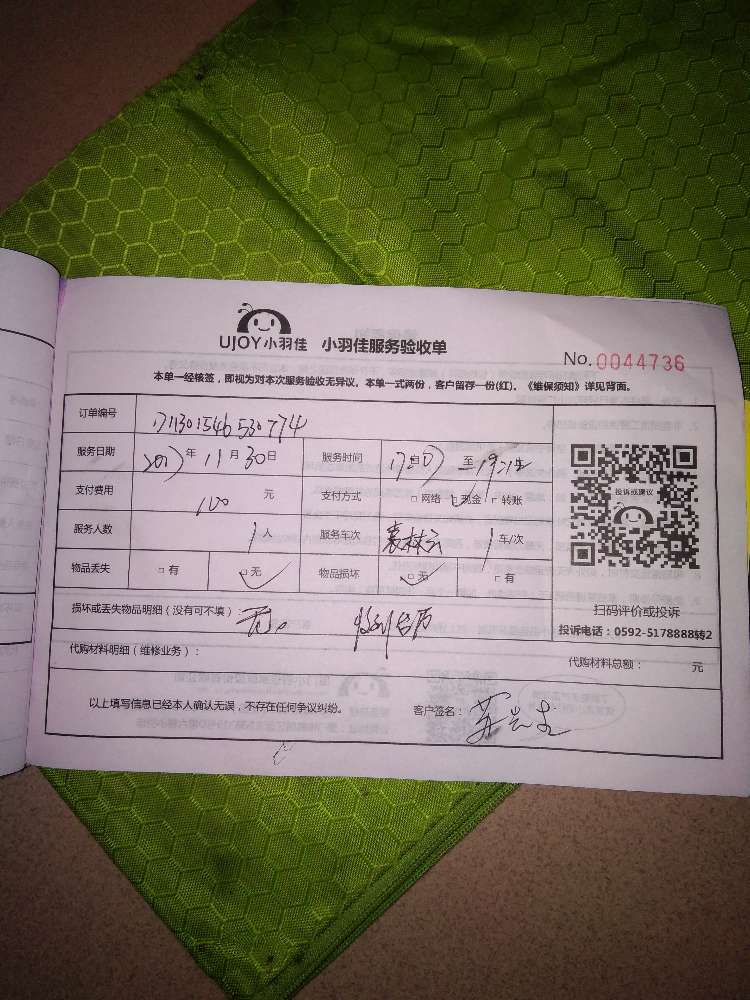 UJOY小羽佳 小羽佳服务验收单
No. 0044736
本单一经核签，即视为对本次服务验收无异议。本单一式两份，客户留存一份(红)。《维保须知》详见背面。
订单编号 171130154653077 4
服务日期 2017年11月30日 服务时间 至
支付费用 100 元 支付方式 □网络 □现金 □转账
服务人数 1人 服务车次 袁林云 1车/次
物品丢失 □有 □无 物品损坏 □无 □有
投诉或建议
扫码评价或投诉
投诉电话：0592-5178888转2
损坏或丢失物品明细（没有可不填） 无 收到台历
代购材料明细（维修业务）： 代购材料总额： 元
以上填写信息已经本人确认无误，不存在任何争议纠纷。 客户签名：